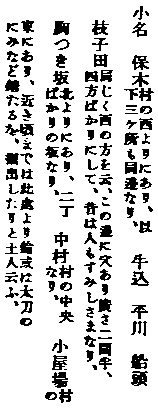 小名　保木村の西よりにあり、以下三ケ所も同邊なり、　牛込　平川　船頭
枝子田同じく西の方を云、この邊に穴あり濶さ二間半、四方ばかりにして、昔は人もすみしさまなり、
駒つき坂北よりにあり、二丁ばかりの坂なり、　中村村の中央なり、　小屋場村の
東にあり、近き頃までは此處より鎗或は太刀の
にみなど錆たるを、掘出したりと土人云ふ、